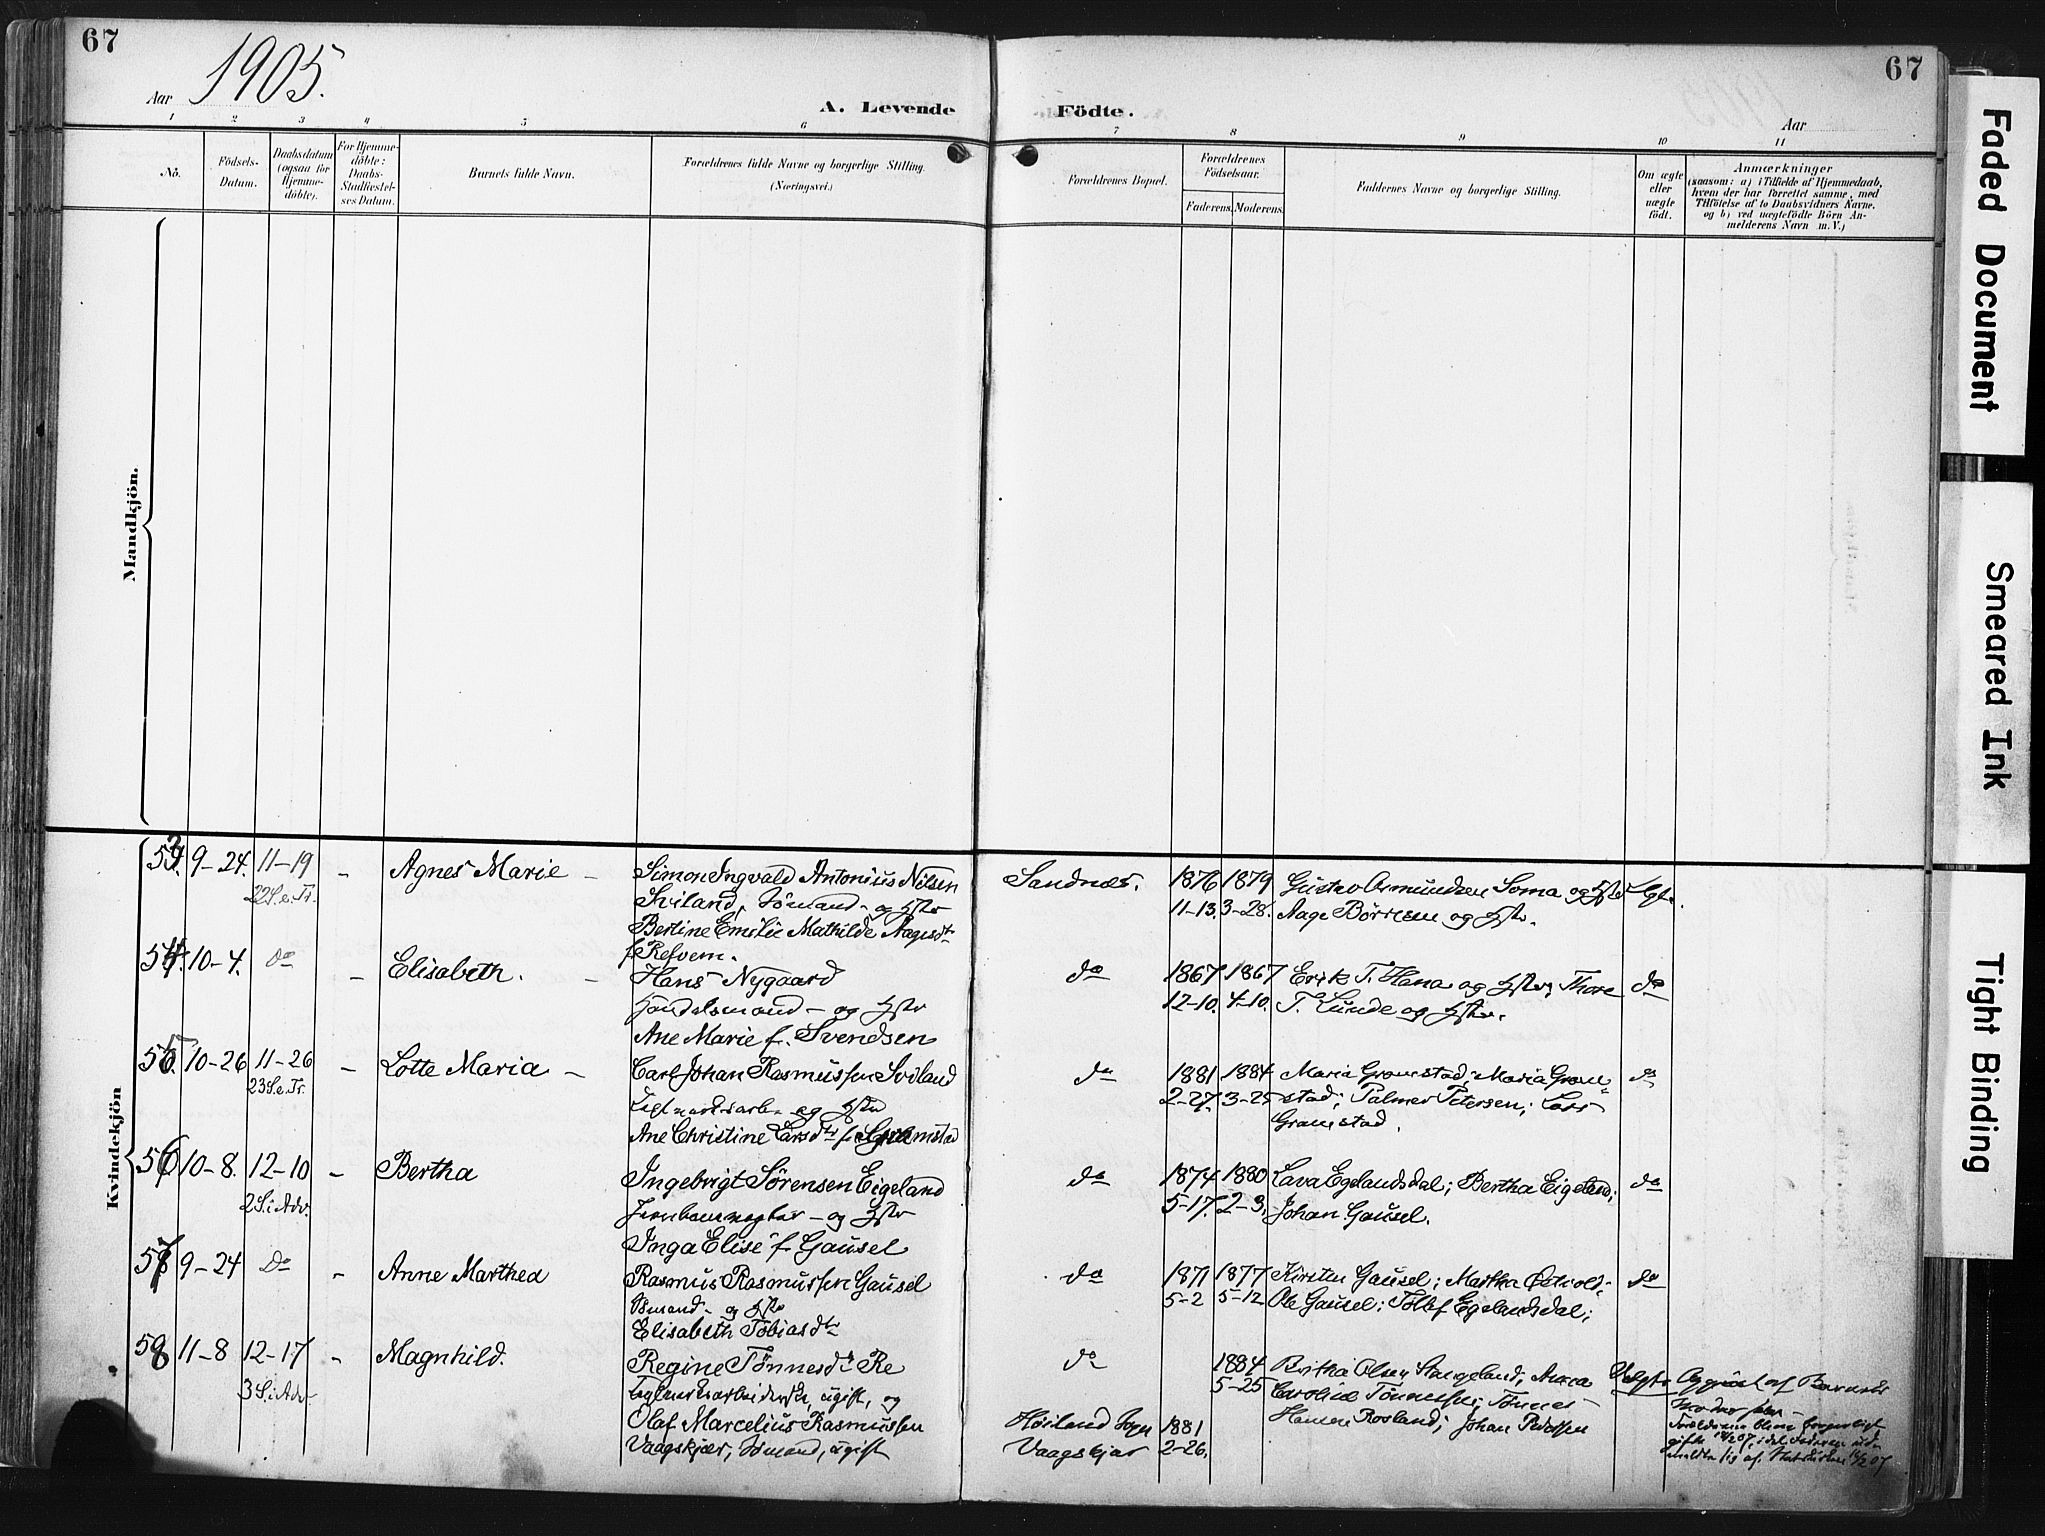 67
1905.
Aar
A. Levende
Födte.
67
Aar
1 2 3 4 5 6 7 8 9 10 11
No.
Födsels-Datum.
Daabsdatum (ogsaa for Hjemme-döbte).
For Hjemme-döbte: Daabs-Stadfæstel-ses Datum.
Barnets fulde Navn.
Forældrenes fulde Navne og borgerlige Stilling.
(Næringsvei.)
Forældrenes Bopæl.
Forældrenes Födselsaar.
Faderens. Moderens.
Faddernes Navne og borgerlige Stilling.
Om ægte eller uægte födt.
Anmærkninger
(saasom: a) i Tilfælde af Hjemmedaab,
hvem der har forrettet samme, med
Tilföielse af to Daabsvidners Navne.
og b) ved uægtefödte Börn An-
melderens Navn m. V.)
Mandkjön.
Kvindekjön
53. 9-24. 11-19 - Agnes Marie - Simon Ingvald Antonius Nilsen Sandnes. 1876 1879 Gustav Osmundsen Soma og Hstr
22 S. e. Tr. Sviland, Sömand - og Hstr 11-13. 3-28. Aage Börresen og Hstr.
Bertine Emilie Mathilde Aagesdtr
f. Refvem.
54. 10-4. do - Elisabeth. - Hans Nygaard do 1867 1867 Erik T. Hana og Hstr; Thore do
Handelsmand - og Hstr 12-10. 4-10. T. Lunde og Hstr.
Ane Marie f. Svendsen
55. 10-26 11-26 - Lotte Maria - Carl Johan Rasmussen Sviland do 1881 1884 Maria Gramstad; Maria Gram- do
23 S. e. Tr. og Hstr 2-27. 3-25 stad; Palmer Petersen; Lars
Ane Christine Larsdtr f. Gramstad Gramstad.
56 10-8. 12-10 - Bertha Ingebrigt Sørensen Eigeland do 1874 1880 Lava Egelandsdal; Bertha Eigeland; do
2 S. i Adv. - og Hstr 5-17. 2-3. Johan Gausel.
Inga Elise f. Gausel
57 9-24 Do - Anne Marthea Rasmus Rasmussen Gausel do 1871 1877 Kirsten Gausel; Martha do
og Hstr 5-2 5-12 Ole Gausel; Tollef Egelandsdal;
Elisabeth Tobiasdtr
58 11-8 12-17 - Magnhild. Regine Tønnesdtr Re do 1884 Britha Olsen Stangeland; Anna Uægte Opgivet af Barnets
3 S. i Adv. Teglværksarbeiderske, ugift, og 5-25 Caroline Tönnessen; Tönnes Moder
Olaf Marcelius Rasmussen Höiland Sogn 1881 Hansen Rosland; Johan Pedersen Forældrene bleve borgerligt
Vaagskjær, Sömand, ugift Vaagskjær 2-26. gifte
Faded Document
Smeared Ink
Tight Binding